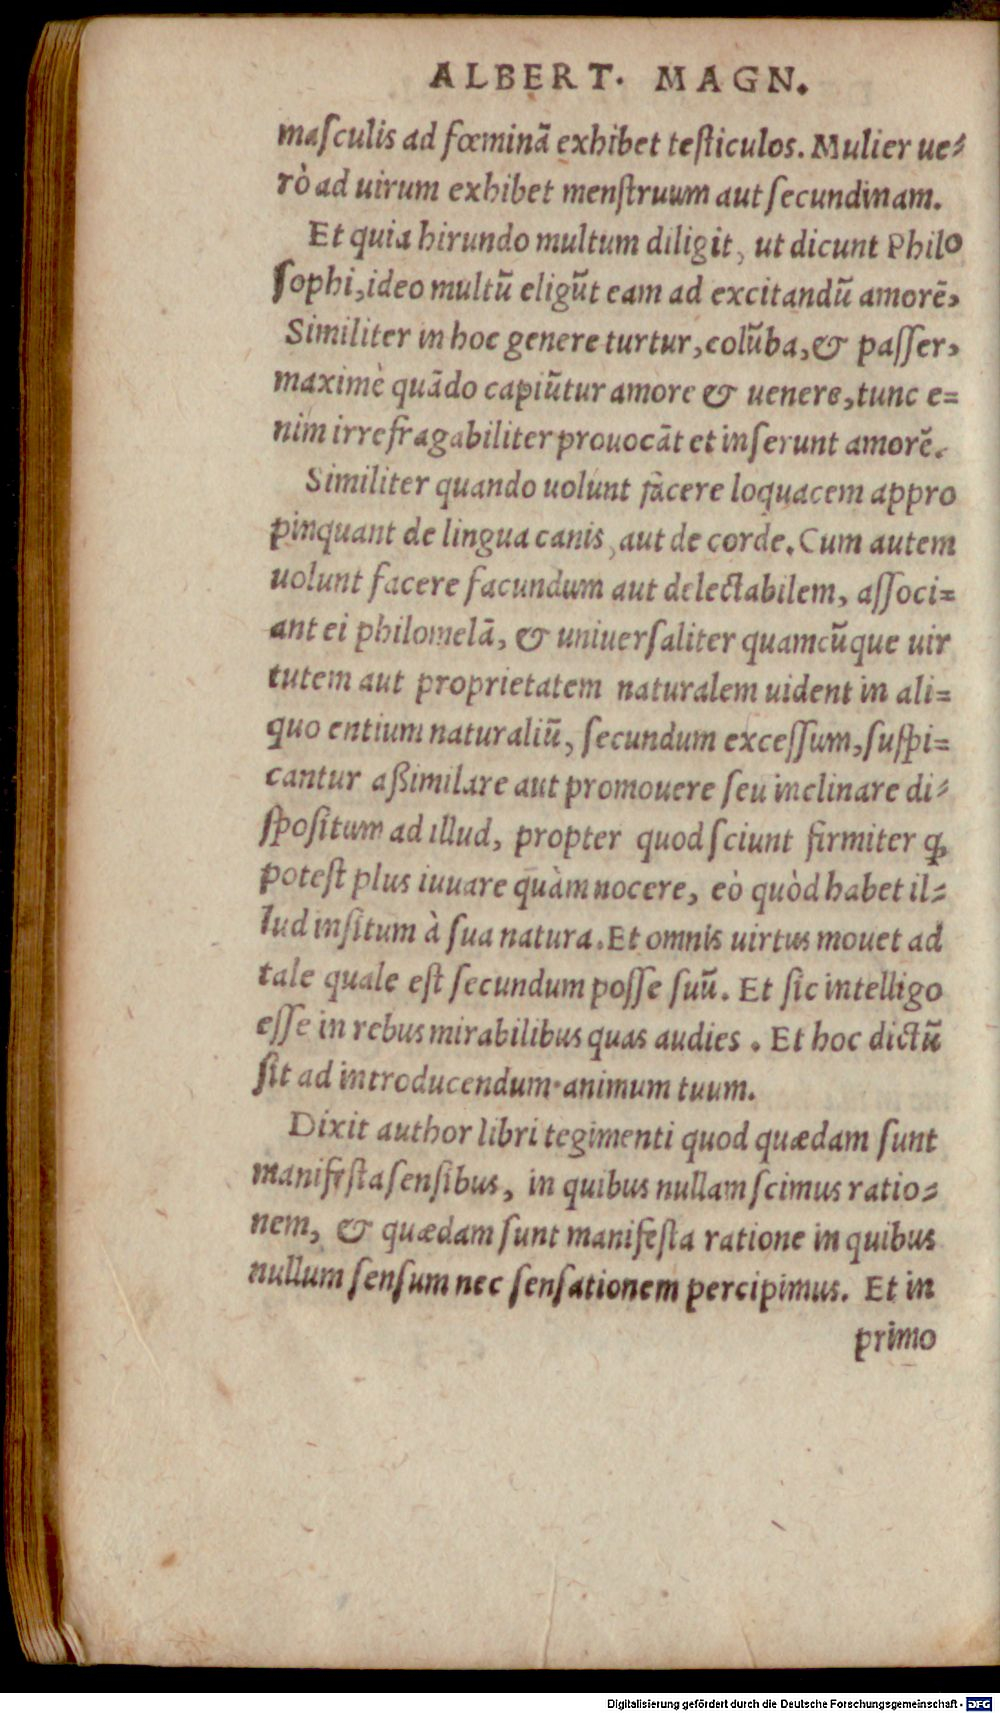 ALBERT. MAGN.
maſculis ad fœminā exhibet teſticulos. Mulier ue⸗
rò ad uirum exhibet menſtruum aut ſecundinam.
Et quia hirundo multum diligit, ut dicunt Philo
ſophi, ideo multū eligūt eam ad excitandū amorē,
Similiter in hoc genere turtur, colūba, & paſſer,
maximè quādo capiūtur amore & uenere, tunc e=
nim irrefragabiliter prouocāt et inſerunt amorē.
Similiter quando uolunt facere loquacem appro
pinquant de lingua canis, aut de corde. Cum autem
uolunt facere facundum aut delectabilem, aſſoci=
ant ei philomelā, & uniuerſaliter quamcūque uir
tutem aut proprietatem naturalem uident in ali=
quo entium naturaliū, ſecundum exceſſum, ſuſpi=
cantur aßimilare aut promouere ſeu inclinare di⸗
ſpoſitum ad illud, propter quod ſciunt firmiter ꝙ
poteſt plus iuuare quàm nocere, eò quòd habet il⸗
lud inſitum à ſua natura. Et omnis uirtus mouet ad
tale quale eſt ſecundum poſſe ſuū. Et ſic intelligo
eſſe in rebus mirabilibus quas audies. Et hoc dictū
ſit ad introducendum animum tuum.
Dixit author libri tegimenti quod quædam ſunt
manifeſta ſenſibus, in quibus nullam ſcimus ratio⸗
nem, & quædam ſunt manifeſta ratione in quibus
nullum ſenſum nec ſenſationem percipimus. Et in
primo
Digitalisierung gefördert durch die Deutsche Forschungsgemeinschaft - DFG